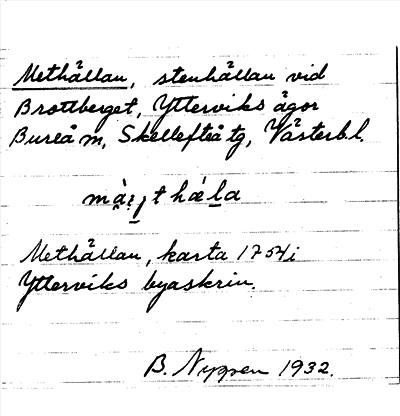 Methällan, stenhällan vid
Brottberget, Ytterviks ägor
Bureå m, Skellefteå tg, Västerb.l.
Methällan, karta 1754 i
Ytterviks byaskrin.
B. Nyppen 1932.